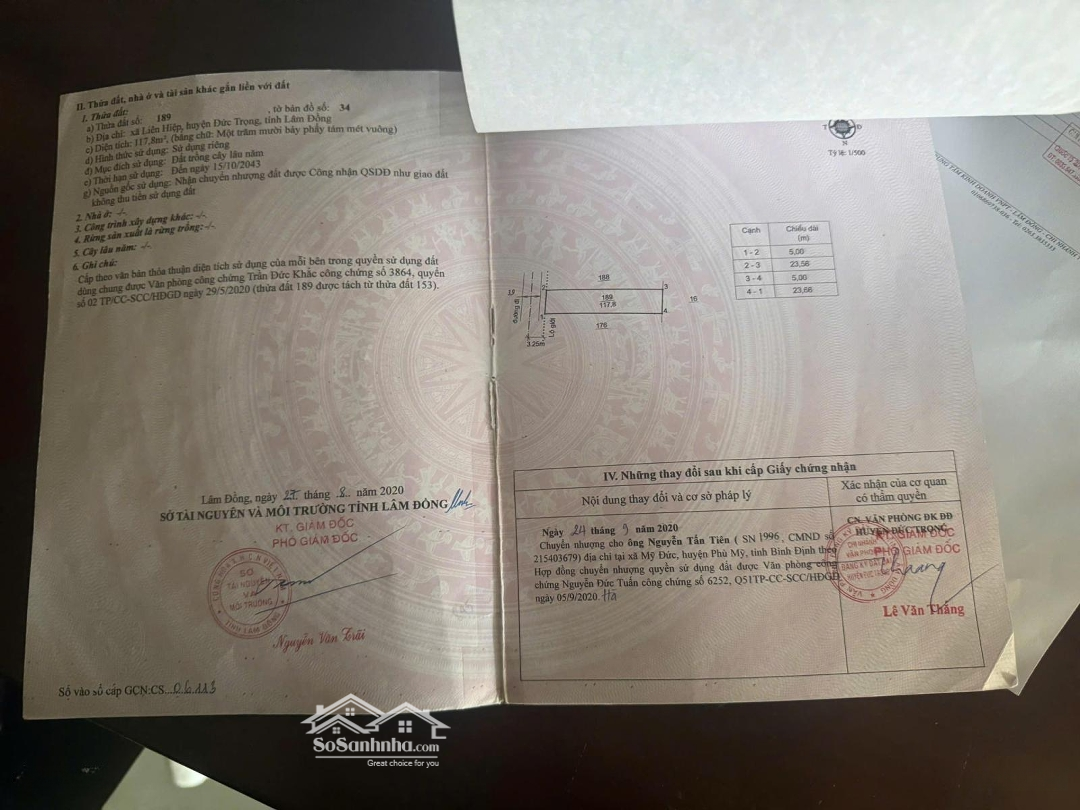 II. Thửa đất, nhà ở và tài sản khác gắn liền với đất
1. Thửa đất:
a) Thửa đất số: 189 , tờ bản đồ số: 34
b) Địa chỉ: xã Liên Hiệp, huyện Đức Trọng, tỉnh Lâm Đồng
c) Diện tích: 117,8m², (bằng chữ: Một trăm mười bảy phẩy tám mét vuông)
d) Hình thức sử dụng: Sử dụng riêng
đ) Mục đích sử dụng: Đất trồng cây lâu năm
e) Thời hạn sử dụng: Đến ngày 15/10/2043
g) Nguồn gốc sử dụng: Nhận chuyển nhượng đất được Công nhận QSDĐ như giao đất
không thu tiền sử dụng đất
2. Nhà ở: -/-
3. Công trình xây dựng khác: -/-
4. Rừng sản xuất là rừng trồng: -/-
5. Cây lâu năm: -/-
6. Ghi chú:
Cấp theo văn bản thỏa thuận diện tích sử dụng của mỗi bên trong quyền sử dụng đất
dùng chung được Văn phòng công chứng Trần Đức Khắc công chứng số 3864, quyển
số 02 TP/CC-SCC/HĐGD ngày 29/5/2020 (thửa đất 189 được tách từ thửa đất 153).
Lâm Đồng, ngày 27 tháng 8 năm 2020
SỞ TÀI NGUYÊN VÀ MÔI TRƯỜNG TỈNH LÂM ĐỒNG
KT. GIÁM ĐỐC
PHÓ GIÁM ĐỐC
SỞ
TÀI NGUYÊN
VÀ
MÔI TRƯỜNG
TỈNH LÂM ĐỒNG
Nguyễn Văn Trãi
Số vào sổ cấp GCN:CS 06113
N
Tỷ lệ: 1/500
Cạnh Chiều dài
(m)
1 - 2 5,00
2 - 3 23,56
3 - 4 5,00
4 - 1 23,56
188
2
3
189
117.8
16
đường đi
Lộ giới
1
4
176
3.25m
IV. Những thay đổi sau khi cấp Giấy chứng nhận
Nội dung thay đổi và cơ sở pháp lý
Xác nhận của cơ quan
có thẩm quyền
Ngày 24 tháng 9 năm 2020
Chuyển nhượng cho ông Nguyễn Tấn Tiên ( SN 1996, CMND số
215403679) địa chỉ tại xã Mỹ Đức, huyện Phù Mỹ, tỉnh Bình Định theo
Hợp đồng chuyển nhượng quyền sử dụng đất được Văn phòng công
chứng Nguyễn Đức Tuấn công chứng số 6252, Q51TP-CC-SCC/HĐGD
ngày 05/9/2020.
CN. VĂN PHÒNG ĐK ĐĐ
HUYỆN ĐỨC TRỌNG
KT. GIÁM ĐỐC
PHÓ GIÁM ĐỐC
Lê Văn Thắng
SoSanhnha.com
Great choice for you